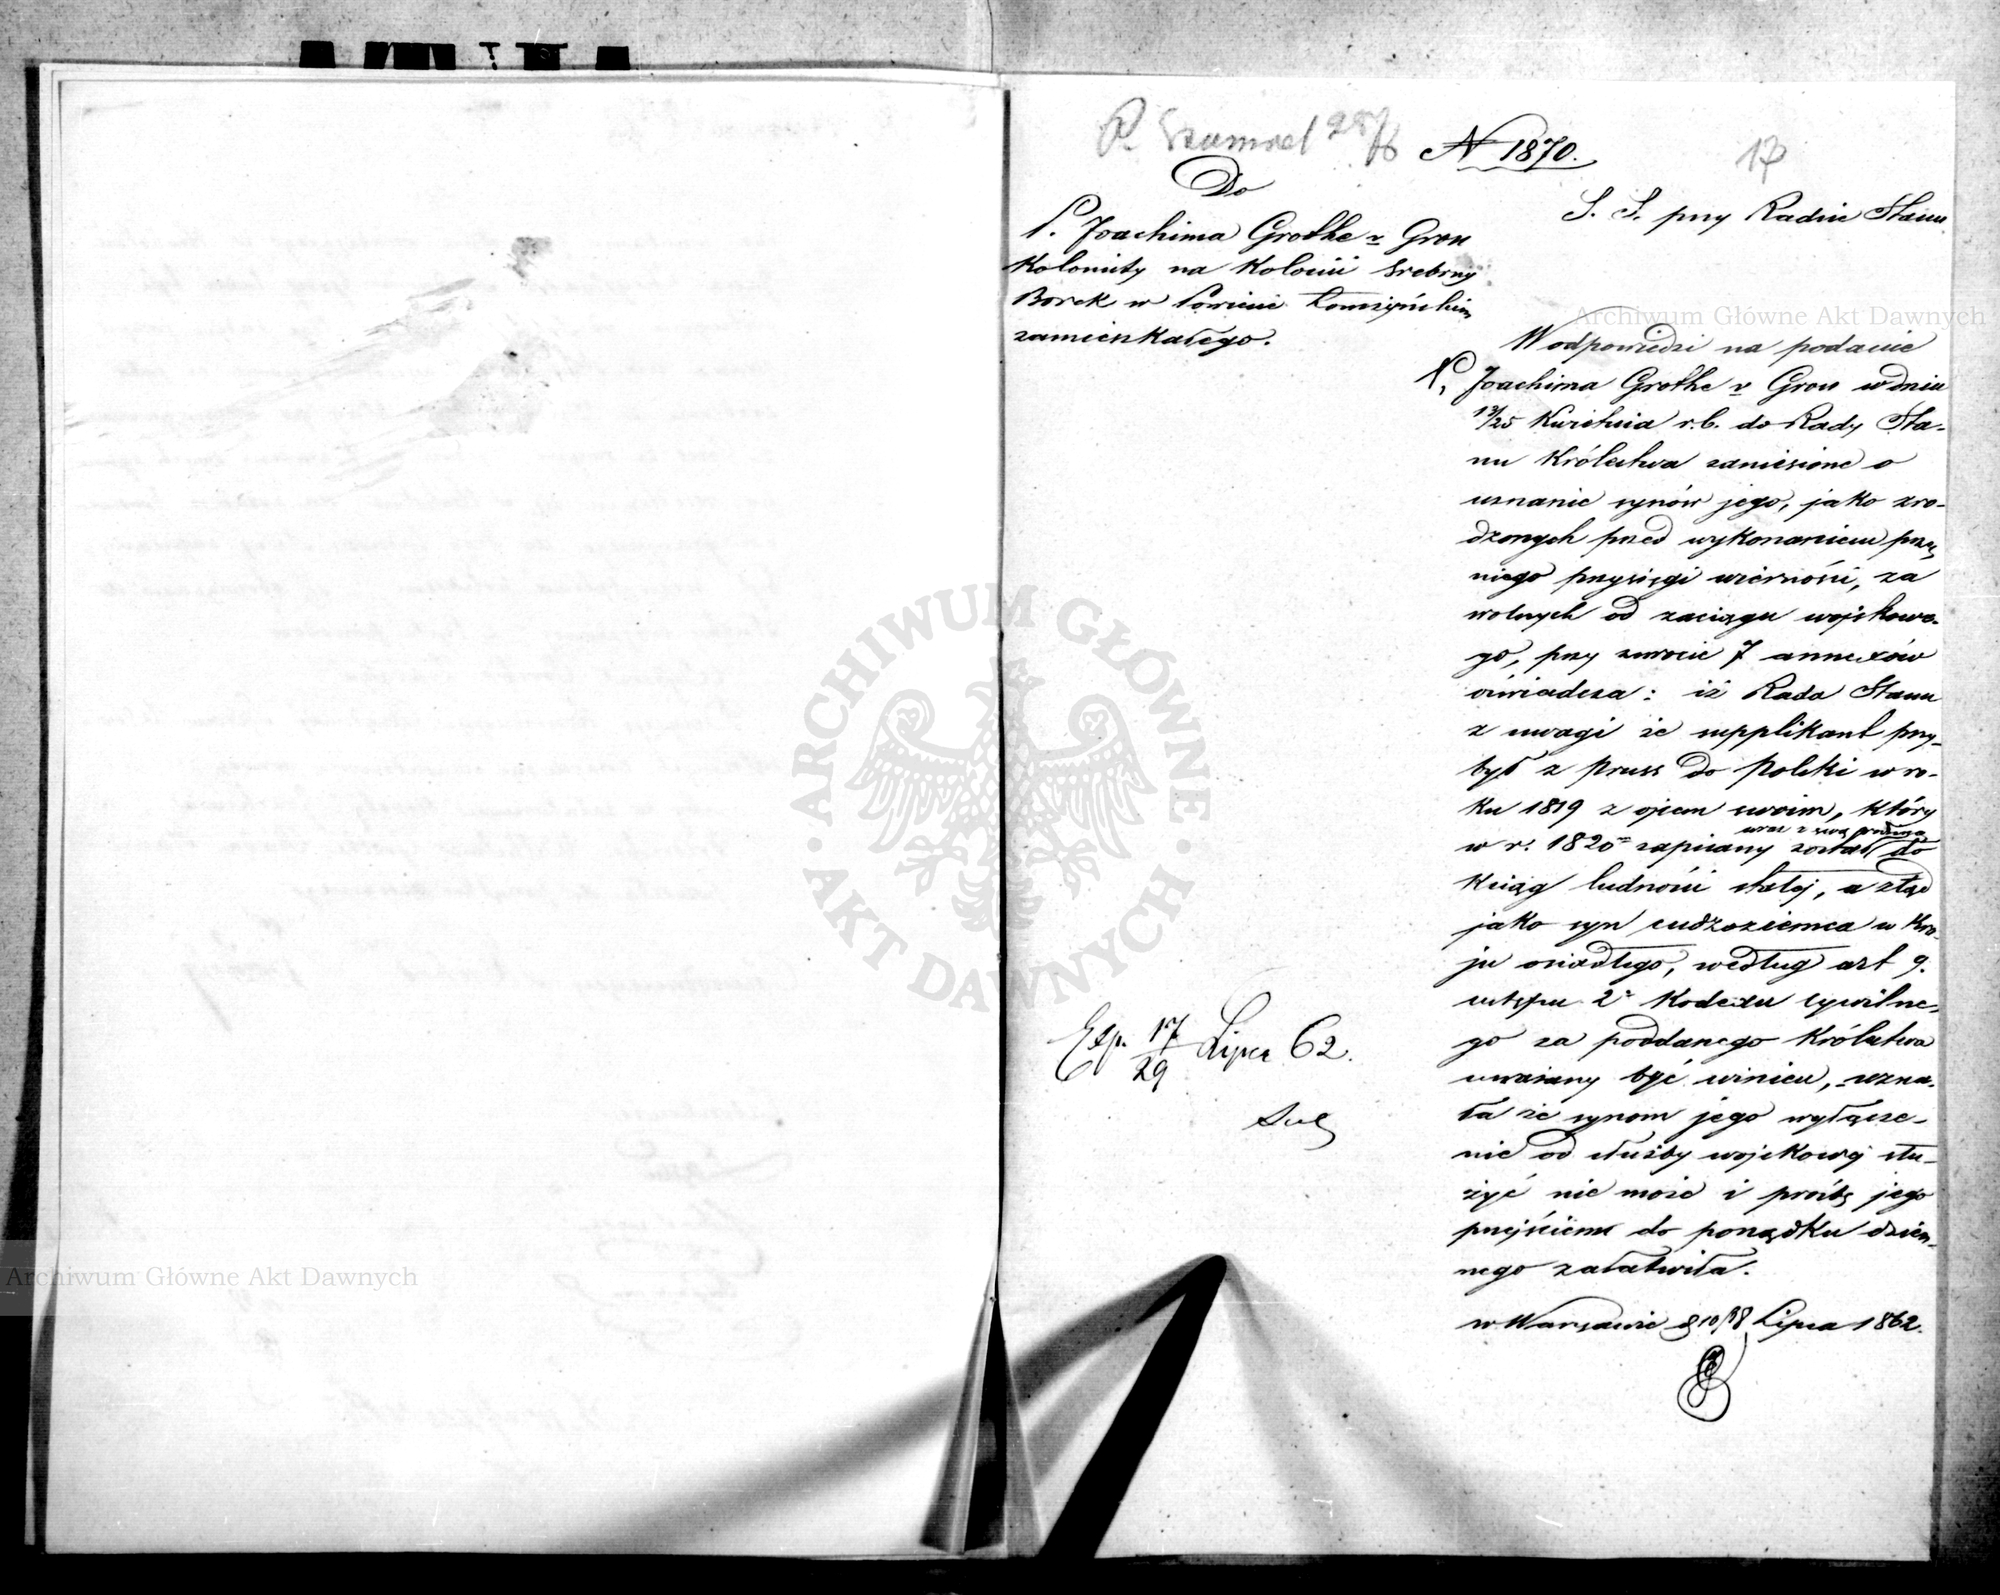 N 1870.
17
Do
P. Joachima Grothe v Gron
Kolonisty na Kolonii Srebrny
Borek w Powiecie Łomżyńskim
zamieszkałego.
S. S. przy Radzie Stanu
W odpowiedzi na podanie
P. Joachima Grothe v Gron w dniu
13/25 Kwietnia r.b. do Rady Sta-
nu Królestwa zaniesione o
uznanie synów jego, jako zro-
dzonych przed wykonaniem przez
niego przysięgi wierności, za
wolnych od zaciągu wojskowe-
go, przy zwrocie 7 annexów
oświadcza: iż Rada Stanu
z uwagi że supplikant przy-
był z Pruss do Polski w ro-
ku 1819 z ojcem swoim, który
wraz z swą familią
w r. 1820 zapisany został do
Ksiąg ludności stałej, a ztąd
jako syn cudzoziemca w Kra-
ju osiadłego, według art 9.
ustępu 2° Kodexu cywilne-
go za poddanego Królestwa
uważany być winien, uzna-
ła że synom jego wyłącze-
nie od służby wojskowej słu-
żyć nie może i prośbę jego
przejściem do porządku dzien-
nego załatwiła.
w Warszawie d 10/18 Lipca 1862.
Exp. 17/29 Lipca 62.
Archiwum Główne Akt Dawnych
Archiwum Główne Akt Dawnych
ARCHIWUM GŁÓWNE
AKT DAWNYCH